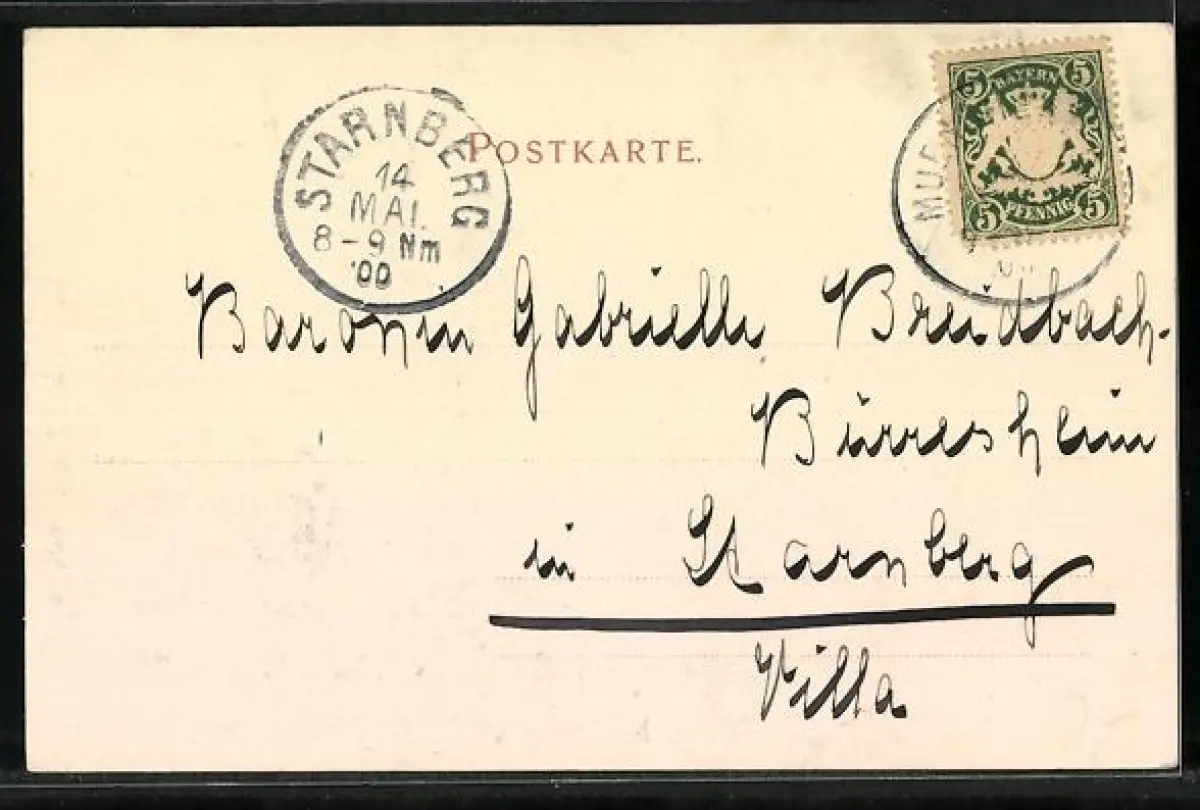 POSTKARTE.
STARNBERG
14
MAI.
8-9 Nm
00
5 BAYERN 5
5 PFENNIG 5
Baronin Gabrielle Breidbach-
Bürresheim
in Starnberg
Villa